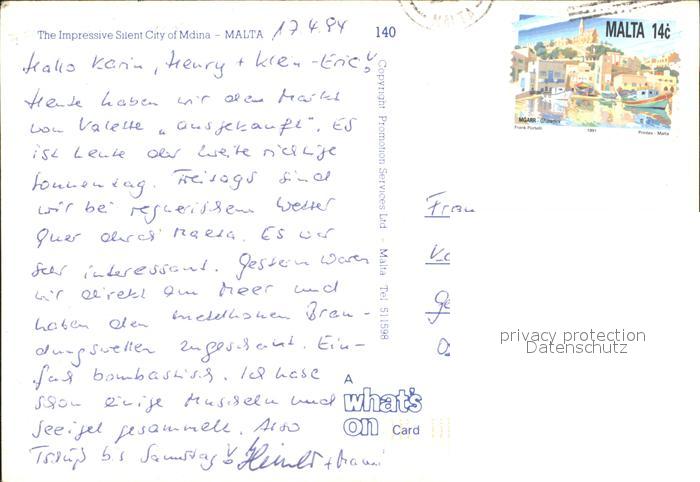 The Impressive Silent City of Mdina – MALTA 17.4.94 140
MALTA
MALTA 14c
MGARR
Frank Portelli 1991 Printex - Malta
Hallo Karin, Henry + Klein-Eric!
Heute haben wir den Markt
von Valetta „ausgekauft". Es
ist heute der zweite richtige
Sonnentag. Freitags sind
wir bei regnerischem Wetter
quer durch Malta. Es war
sehr interessant. Gestern waren
wir direkt am Meer und
haben den meterhohen Bran-
dungswellen zugeschaut. Ein-
fach bombastisch. Ich habe
schon einige Muscheln und
Seeigel gesammelt. Also
Tschüß bis Samstag!
Copyright Promotion Services Ltd - Malta Tel 511598
Frau
privacy protection
Datenschutz
A
what's
on Card